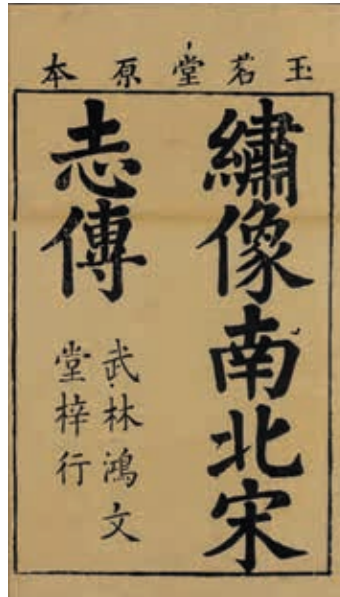 玉茗堂原本
繡像南北宋
志傳
武林鴻文
堂梓行